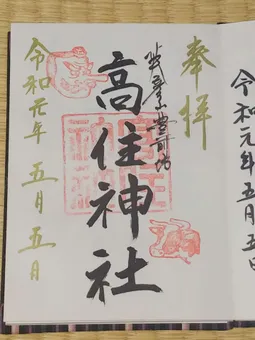 令和元年五月五日
奉拝
英彦山豊前坊
高住神社
令和元年 五月五日